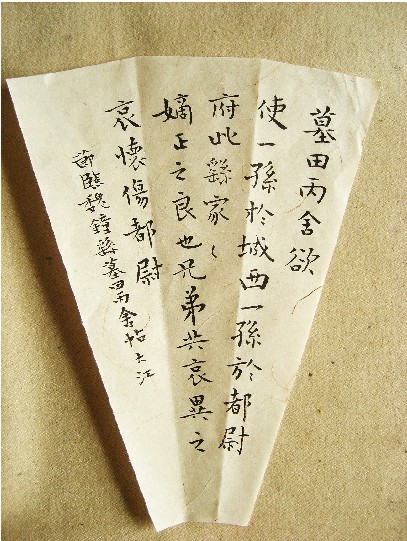 墓田丙舍欲
使一孫於城西一孫於都尉
府此繇家〻
嫡正之良也兄弟共哀異之
哀懷傷都尉
節臨魏鍾繇墓田丙舍帖大江